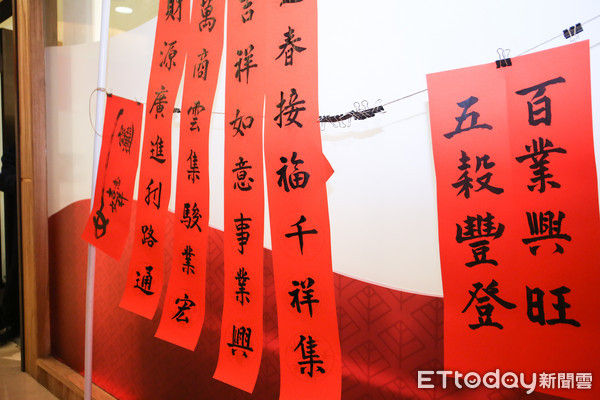 百業興旺
五穀豐登
春接福千祥集
吉祥如意事業興
萬商雲集駿業宏
財源廣進利路通
ETtoday新聞雲